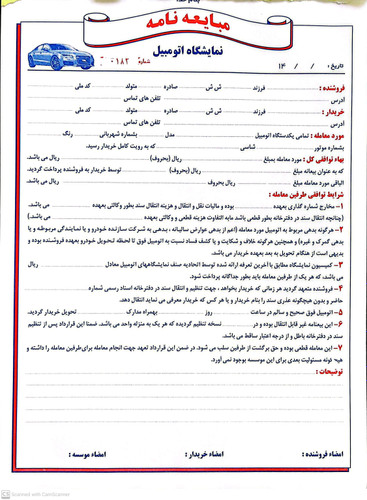 بنام خدا
مبایعه نامه
نمایشگاه اتومبیل
شماره ۱۸۲
تاریخ : / / ۱۴
فروشنده : فرزند ش ش صادره متولد کد ملی
آدرس تلفن های تماس
خریدار : فرزند ش ش صادره متولد کد ملی
آدرس تلفن های تماس
مورد معامله : تمامی یکدستگاه اتومبیل مدل بشماره شهربانی رنگ
بشماره موتور شاسی که به رویت کامل خریدار رسید.
بهاء توافقی کل : مورد معامله بمبلغ ریال (بحروف) ریال می باشد.
که به عنوان بیعانه مبلغ ریال (بحروف) توسط خریدار به فروشنده پرداخت گردید.
الباقی مورد معامله مبلغ ریال بحروف ریال می باشد.
شرایط توافقی طرفین معامله :
۱- مخارج شماره گذاری بعهده بوده و مالیات نقل و انتقال و هزینه انتقال سند بطور وکالتی بعهده می باشد.
(چنانچه انتقال سند در دفترخانه بطور قطعی باشد مابه التفاوت هزینه قطعی و وکالتی بعهده می باشد)
۲- هرگونه بدهی مربوط به اتومبیل مورد معامله (اعم از بدهی عوارض سالیانه ، بدهی به شرکت سازنده خودرو و یا نمایندگی مربوطه و یا
بدهی گمرک و غیره) و همچنین هرگونه خلاف و شکایت و یا کشف فساد نسبت به اتومبیل فوق تا لحظه تحویل خودرو بعهده فروشنده بوده و
بدیهی است از هنگام تحویل به بعد بعهده خریدار می باشد.
۳- کمیسیون نمایشگاه مطابق با آخرین تعرفه ارائه شده توسط اتحادیه صنف نمایشگاههای اتومبیل معادل ریال
می باشد، که هر یک از طرفین معامله باید بطور جداگانه پرداخت شود.
۴- فروشنده متعهد گردید هر زمانی که خریدار بخواهد ، جهت تنظیم و انتقال سند در دفترخانه اسناد رسمی شماره
حاضر و بدون هیچگونه عذری سند را بنام خریدار و یا هر کس که خریدار معرفی می نماید انتقال دهد.
۵- اتومبیل فوق صحیح و سالم در ساعت روز بهمراه مدارک تحویل خریدار گردید.
۶- این بیعنامه غیر قابل انتقال بوده و در نسخه تنظیم گردیده که هر یک به منزله واحد می باشد. ضمنا این قرارداد پس از تنظیم
سند در دفترخانه باطل و از درجه اعتبار ساقط می باشد.
۷- این معامله قطعی بوده و حق برگشت از طرفین سلب می شود. در ضمن این قرارداد تعهد جهت انجام معامله برای طرفین معامله را داشته و
هیچ گونه مسئولیت بعدی برای این موسسه بوجود نمی آورد.
توضیحات :
امضاء فروشنده : امضاء خریدار : امضاء موسسه :
CS Scanned with CamScanner